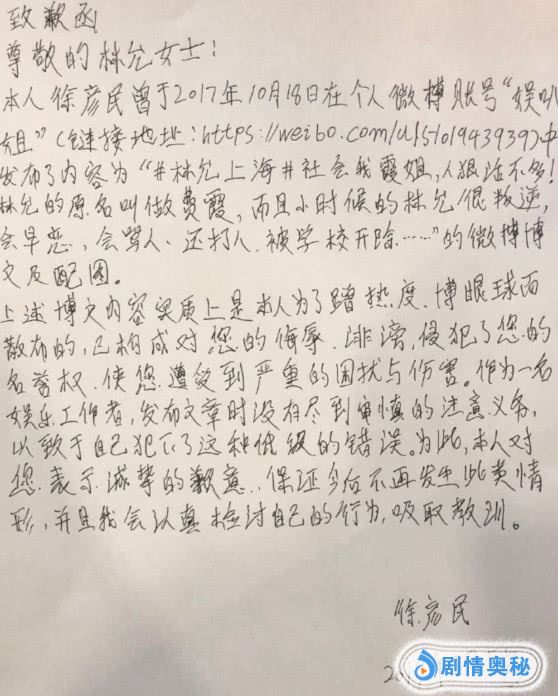 致歉函
尊敬的林允女士：
本人徐彦民曾于2017年10月18日在个人微博账号“娱叭
姐”（链接地址：https://weibo.com/u/5101943939）中
发布了内容为“#林允上海#社会我霞姐，人狠话不多！
林允的原名叫做费霞，而且小时候的林允很叛逆，
会早恋、会骂人、还打人、被学校开除……”的微博博
文及配图。
上述博文内容实质上是本人为了蹭热度、博眼球而
散布的，已构成对您的侮辱、诽谤，侵犯了您的
名誉权，使您遭受到严重的困扰与伤害。作为一名
娱乐工作者，发布文章时没有尽到审慎的注意义务，
以致于自己犯下了这种低级的错误。为此，本人对
您表示诚挚的歉意，保证今后不再发生此类情
形，并且我会认真检讨自己的行为，吸取教训。
徐彦民
剧情奥秘